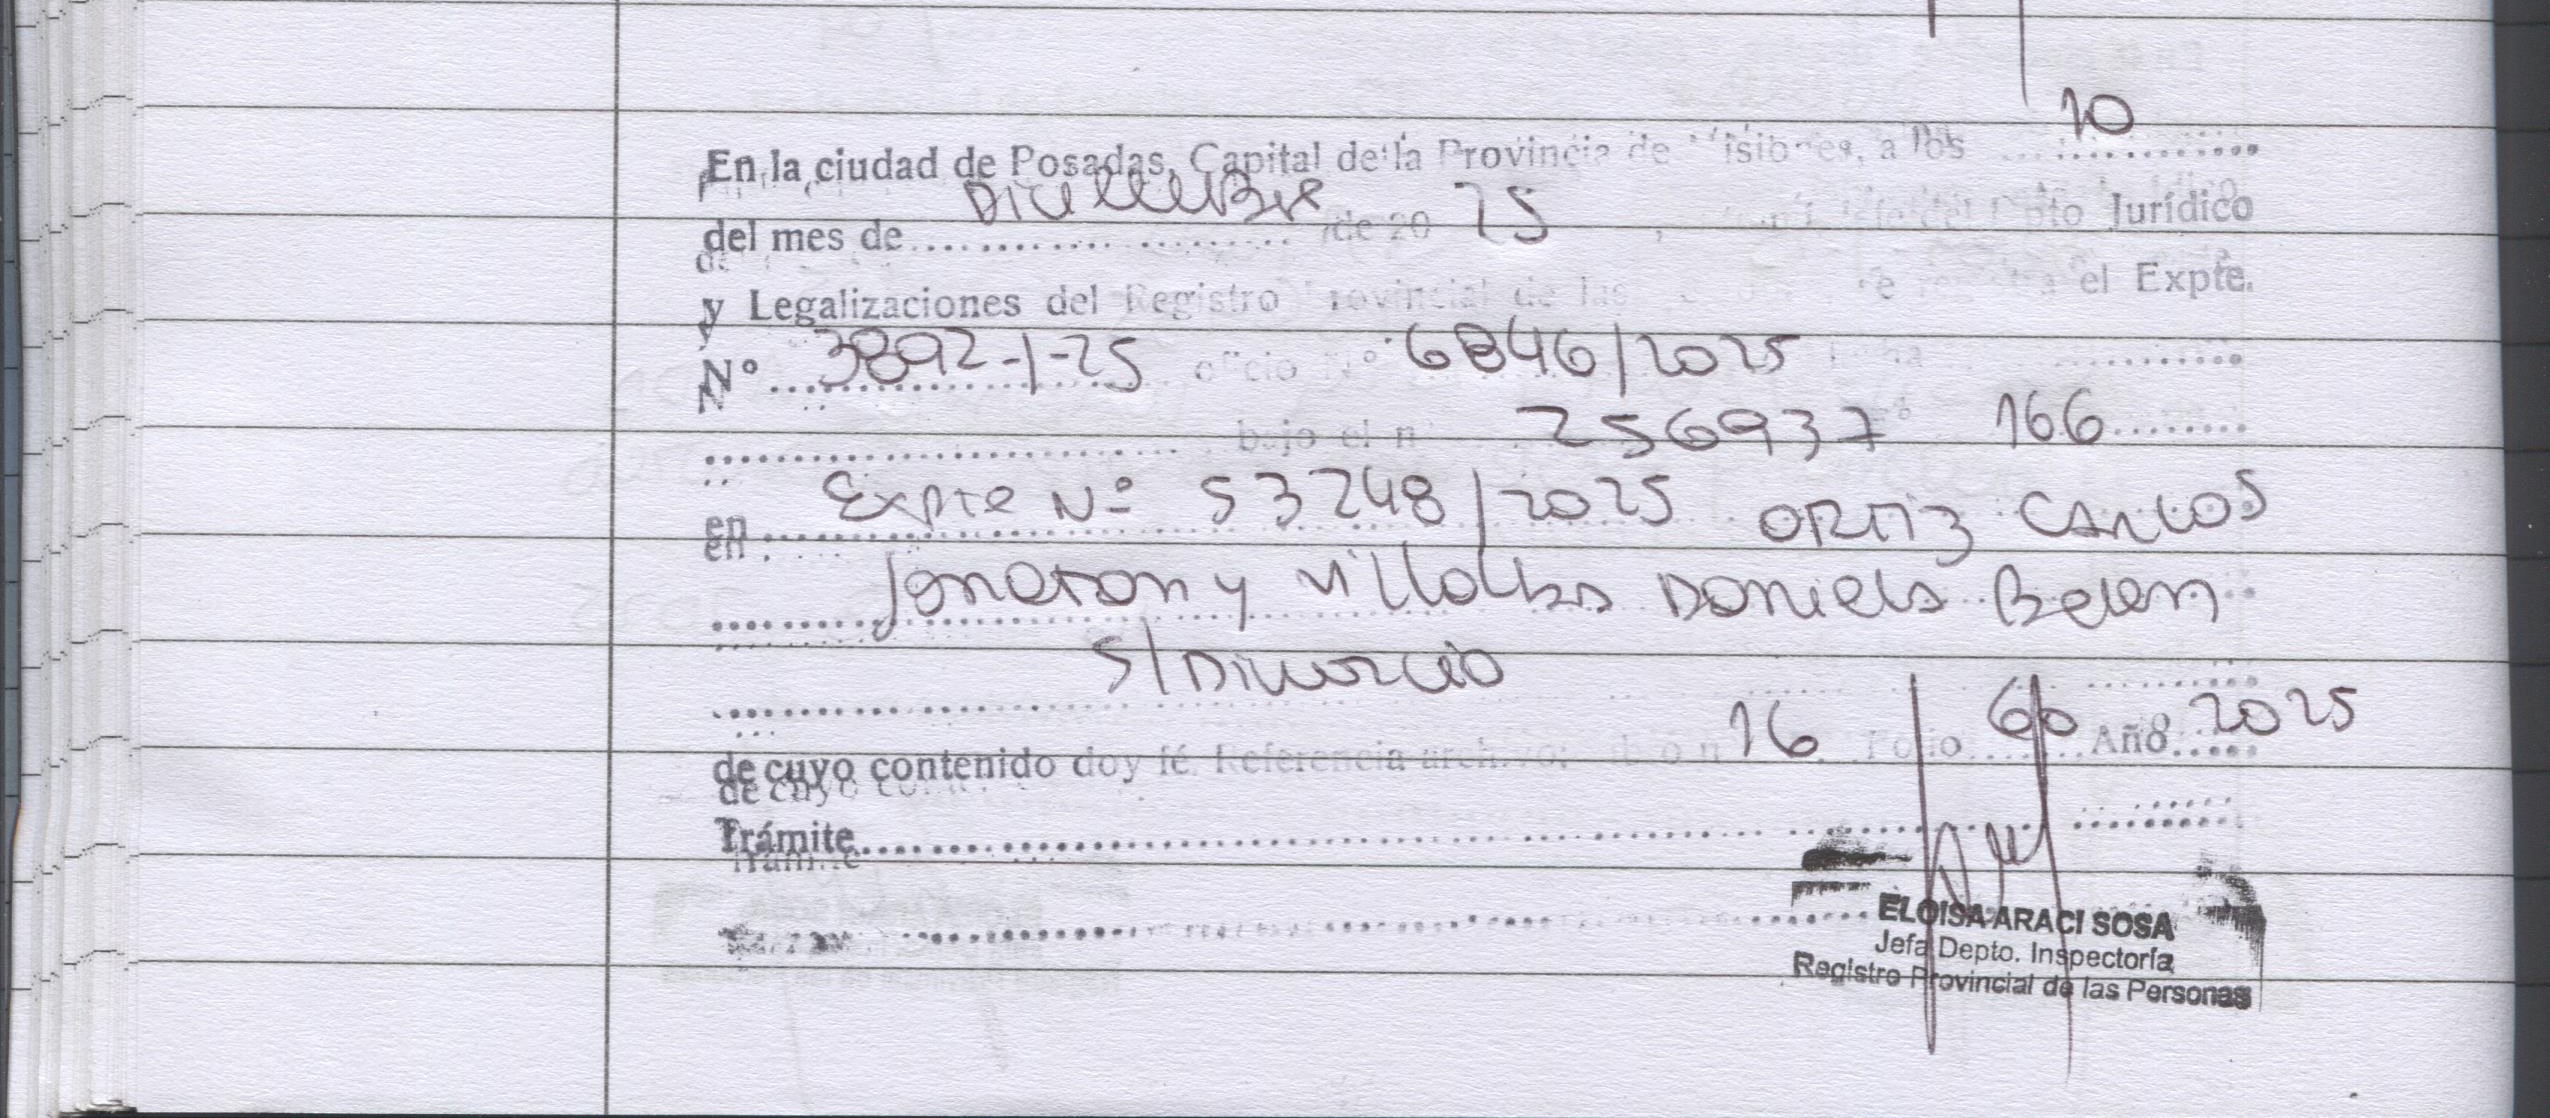 10
En la ciudad de Posadas, Capital de la Provincia de Misiones, a los
Diciembre 25
del mes de de 20 Jurídico
y Legalizaciones del Registro Provincial de las el Expte.
N° 3892-1-25 oficio N° 6846/2025
bajo el n 256937 166
en Expte Nº 53248/2025 ORTIZ CARLOS
Jonatan y Villalba Daniela Belen
S/Divorcio
de cuyo contenido doy fé. Referencia archivo: 16 Folio 60 Año 2025
Trámite
ELOISA ARACI SOSA
Jefa Depto. Inspectoría
Registro Provincial de las Personas